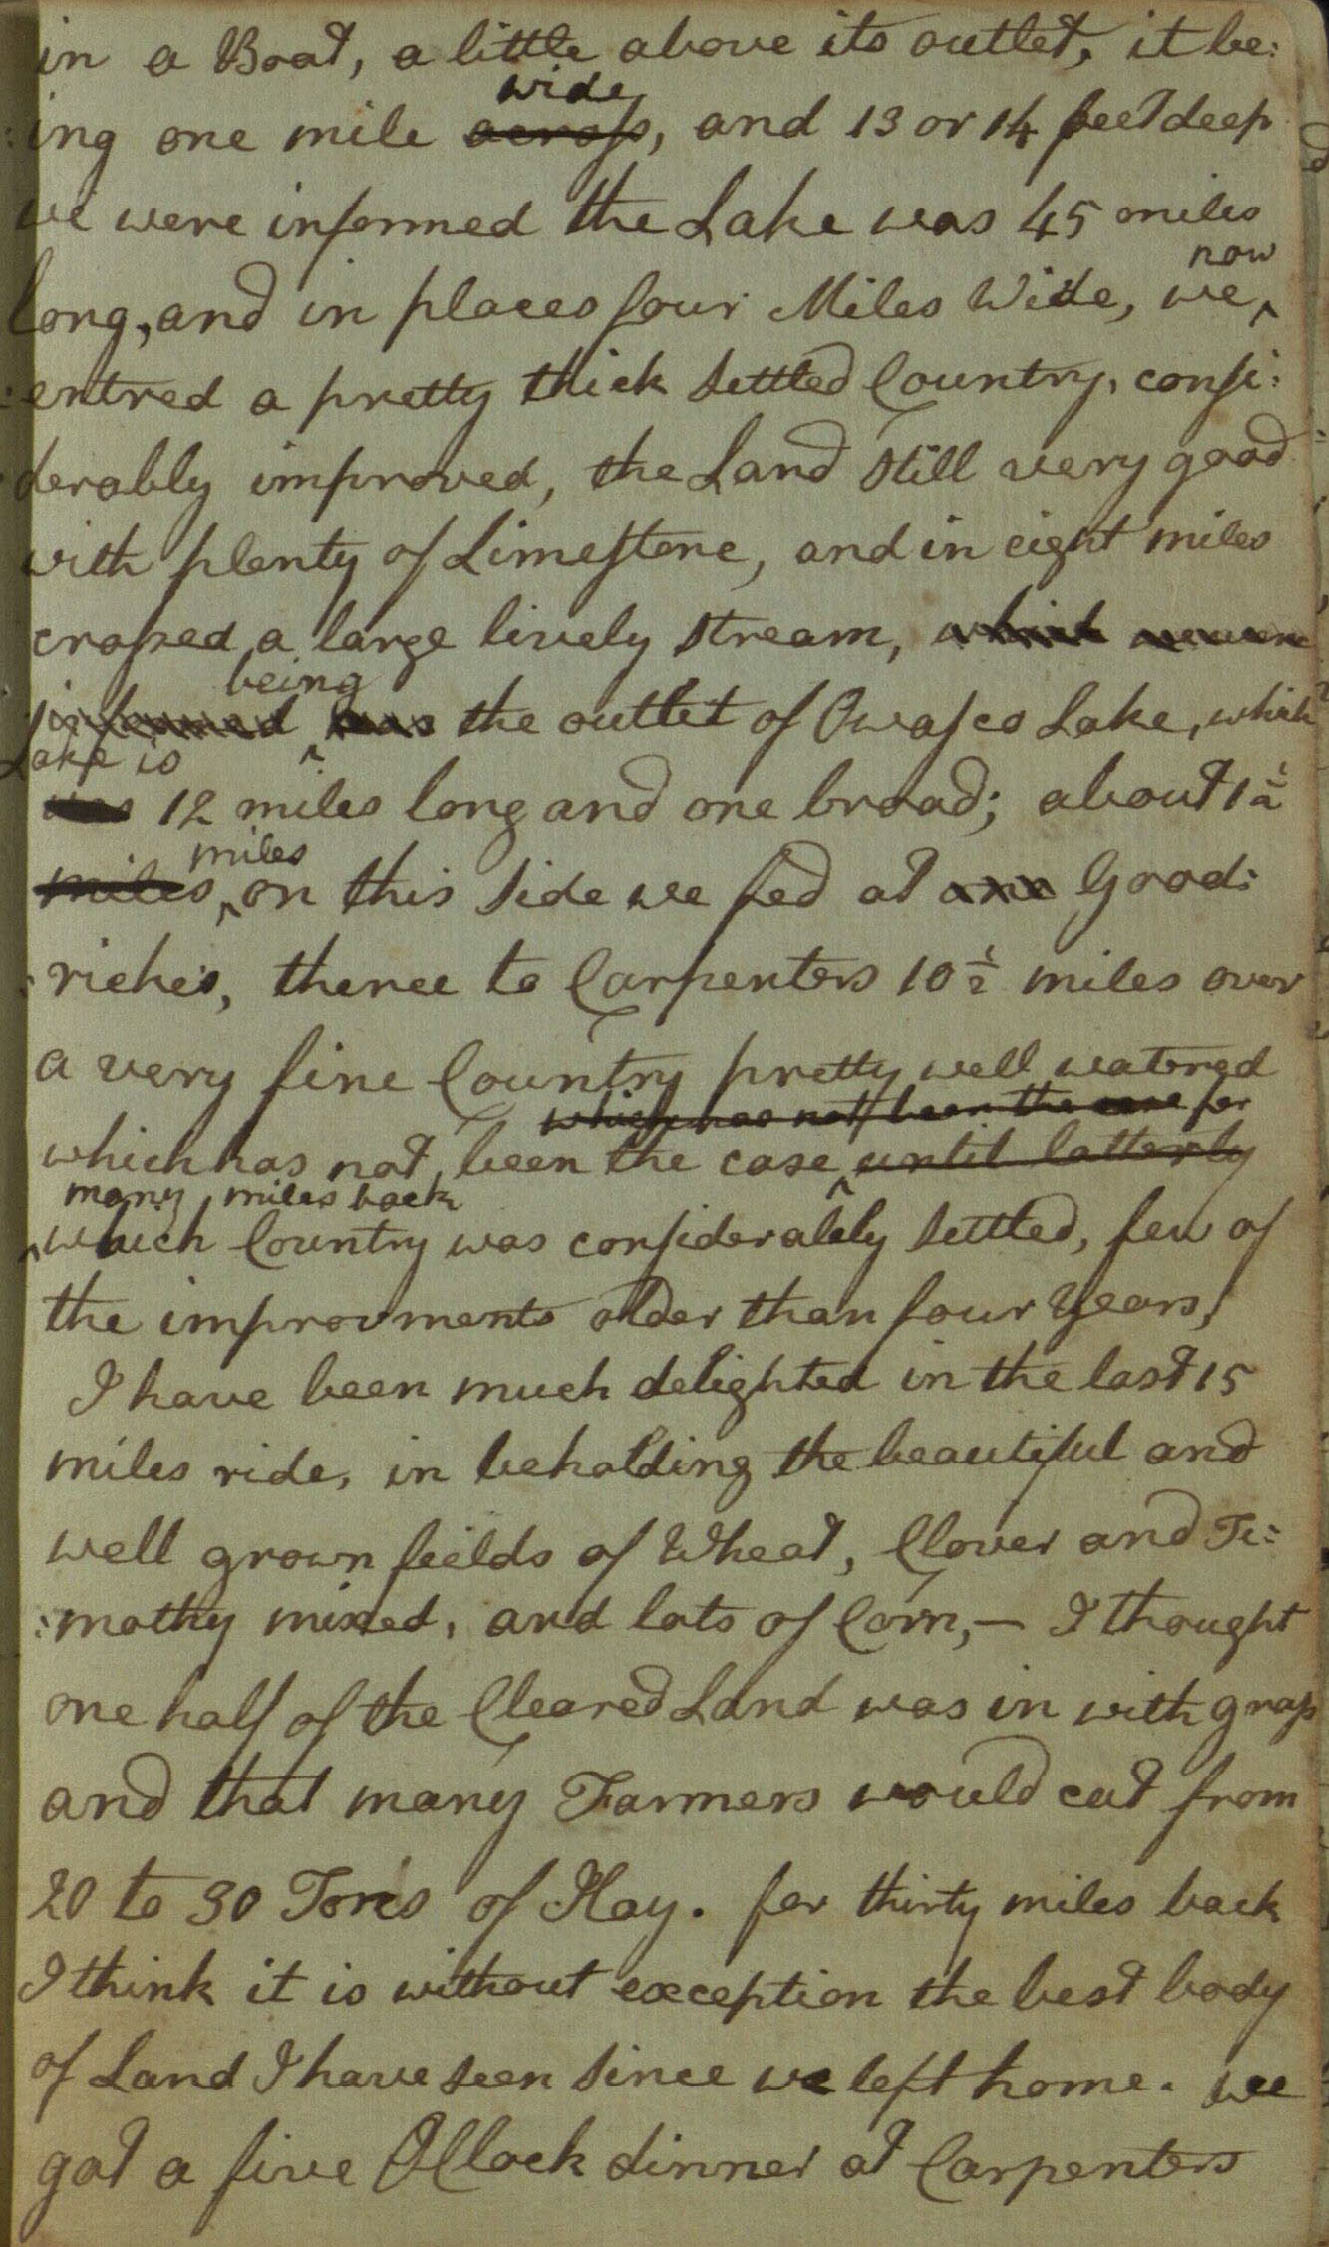 in a Boat, a little above its outlet, it be:
wide
:ing one mile across, and 13 or 14 feet deep
we were informed the Lake was 45 miles
now
long, and in places four Miles Wide, we ‸
:entred a pretty thick settled Country, consi:
derably improved, the Land still very good
with plenty of Limestone, and in eight miles
crossed a large lively stream, which we were
being
informed ‸ was the outlet of Owasco Lake, which
Lake is
was 12 miles long and one broad; about 1½
miles
miles ‸ on this side we fed at one Good:
:riches, thence to Carpenters 10½ miles over
a very fine Country pretty well watered
which has not been the case for
which has not been the case ‸ until latterly
many miles back
‸ which Country was considerably settled, few of
the improvments older than four years,
I have been much delighted in the last 15
miles ride, in beholding the beautiful and
well grown fields of Wheat, Clover and Ti:
:mothy mixed, and lots of Corn, — I thought
one half of the Cleared Land was in with grass
and that many Farmers would cut from
20 to 30 Tons of Hay. for thirty miles back
I think it is without exception the best body
of Land I have seen since we left home. we
got a five OClock dinner at Carpenters